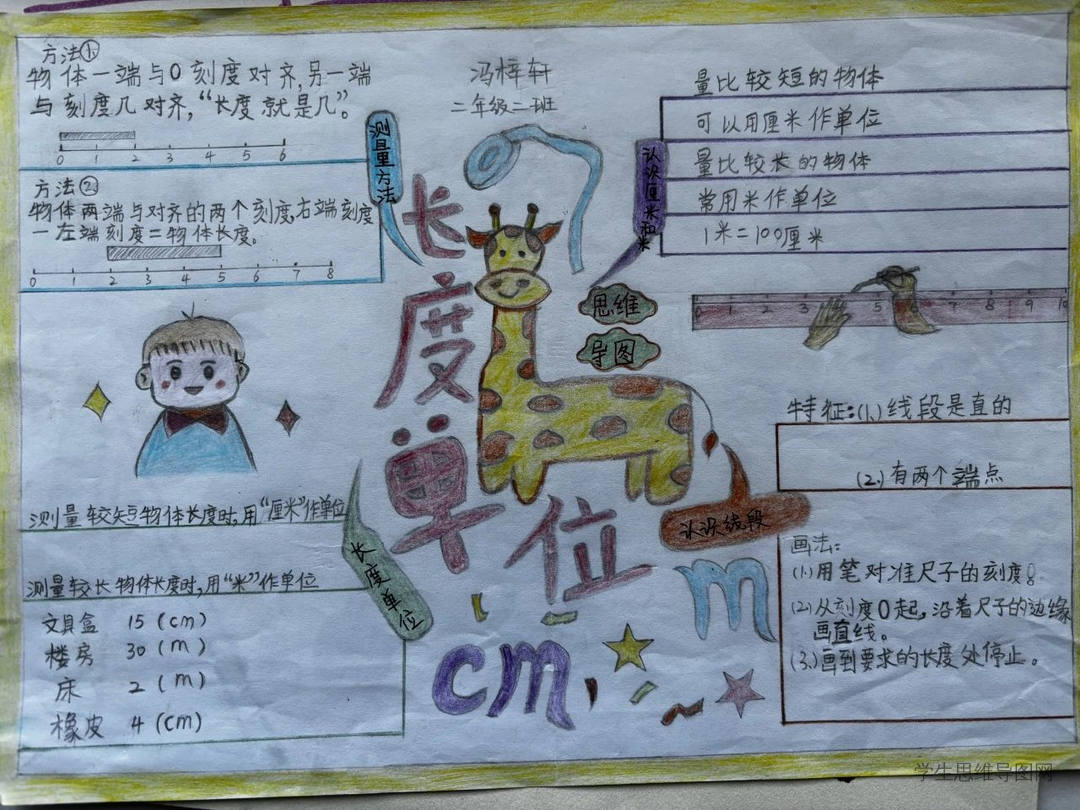 冯梓轩
二年级二班
长度单位
思维
导图
测量方法
方法①
物体一端与0刻度对齐,另一端
与刻度几对齐,“长度就是几”。
0 1 2 3 4 5 6
方法②
物体两端与对齐的两个刻度,右端刻度
一左端刻度=物体长度。
0 1 2 3 4 5 6 7 8
认识厘米和米
量比较短的物体
可以用厘米作单位
量比较长的物体
常用米作单位
1米=100厘米
0 1 2 3 5 6 7 8 9 10
长度单位
测量较短物体长度时,用“厘米”作单位
测量较长物体长度时,用“米”作单位
文具盒 15(cm)
楼房 30(m)
床 2(m)
橡皮 4(cm)
认识线段
特征:(1.)线段是直的
(2.)有两个端点
画法:
(1.)用笔对准尺子的刻度0
(2.)从刻度0起,沿着尺子的边缘
画直线。
(3.)画到要求的长度处停止。
m
cm
学生思维导图网